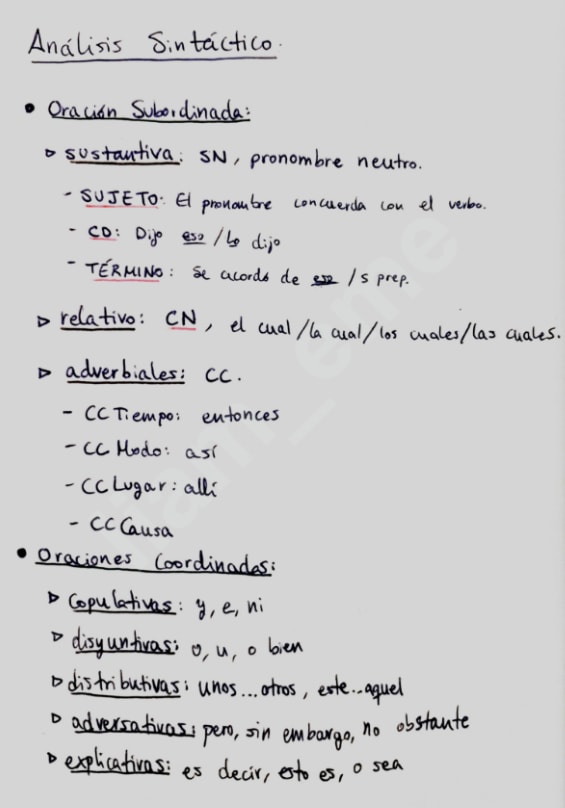 Análisis Sintáctico.
• Oración Subordinada:
▹ sustantiva: SN, pronombre neutro.
- SUJETO: El pronombre concuerda con el verbo.
- CD: Dijo eso / Lo dijo
- TÉRMINO: Se acordó de eso / s prep.
▹ relativo: CN, el cual/la cual/los cuales/las cuales.
▹ adverbiales: CC.
- CC Tiempo: entonces
- CC Modo: así
- CC Lugar: allí
- CC Causa
• Oraciones Coordinadas:
▹ copulativas: y, e, ni
▹ disyuntivas: o, u, o bien
▹ distributivas: unos...otros, este...aquel
▹ adversativas: pero, sin embargo, no obstante
▹ explicativas: es decir, esto es, o sea